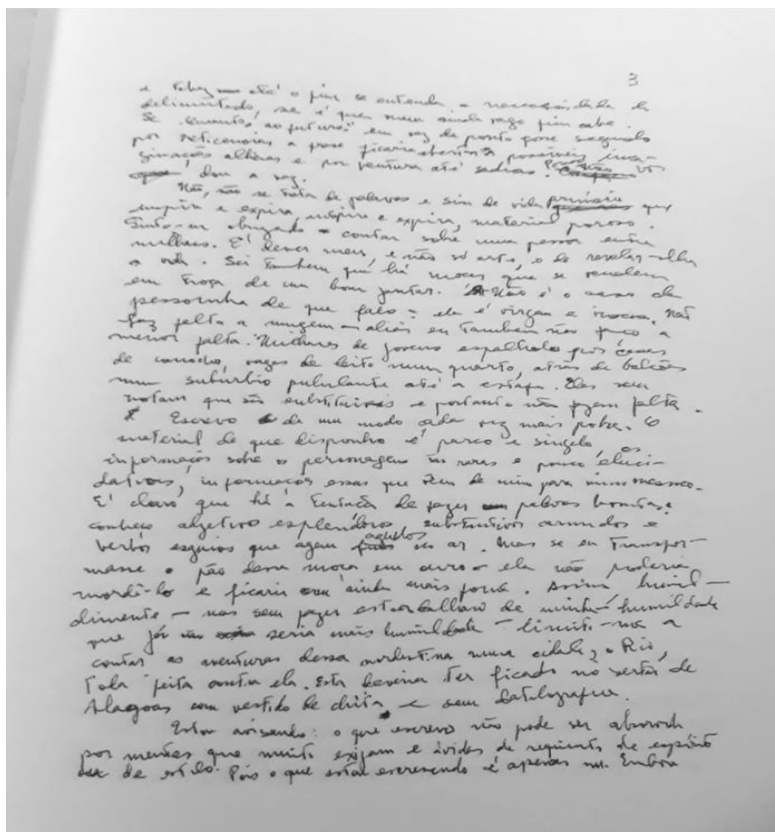 3
e talvez até o fim se entenda a necessidade da
delimitado, se é que num ainda vago fim cabe.
Se em vez de ponto fosse seguido
por reticências a frase ficaria aberta a possíveis ima-
ginações alheias e por ventura até sadias.
dou a vez.
Não, não se trata de palavras e sim de vida primária que
inspira e expira, inspira e expira, material poroso.
Sinto-me obrigado a contar sobre uma pessoa entre
milhares. E é dever meu, e não só arte, o de revelar-lhe
a vida. Sei também que há moças que se vendem
em troca de um bom jantar. Não é o caso da
pessoinha de que falo: ela é virgem e inócua, não
faz falta a ninguém — aliás eu também não faço a
menor falta. Milhares de jovens espalhados por
de cortiço, vagas de leito num quarto, atrás de balcões
num subúrbio pululante até a estafa. Eles nem
notam que são substituíveis e portanto não fazem falta.
Escrevo de um modo cada vez mais pobre. O
material de que disponho é parco e singelo, as
informações sobre os personagens são raras e pouco eluci-
dativas, informações essas que vêm de mim para mim mesmo.
É claro que há a tentação de fazer palavras bonitas:
conheço adjetivos esplêndidos, substantivos carnudos e
verbos esguios que agem agudos no ar. Mas se eu transfor-
masse o pão dessa moça em ouro — ela não poderia
mordê-lo e ficaria ainda mais fome. Assim, humil-
dimente — mas sem fazer estardalhaço de minha humildade
que já não seria mais humildade — limito-me a
contar as aventuras dessa nordestina numa cidade, o Rio,
toda feita contra ela. Esta deveria ter ficado no sertão de
Alagoas com vestido de chita e sem datilografia.
Estou avisando: o que escrevo não pode ser absorvido
por mentes que muito exijam e ávidas de requinte de espírito
de estilo. Pois o que estou escrevendo é apenas nu. Embora